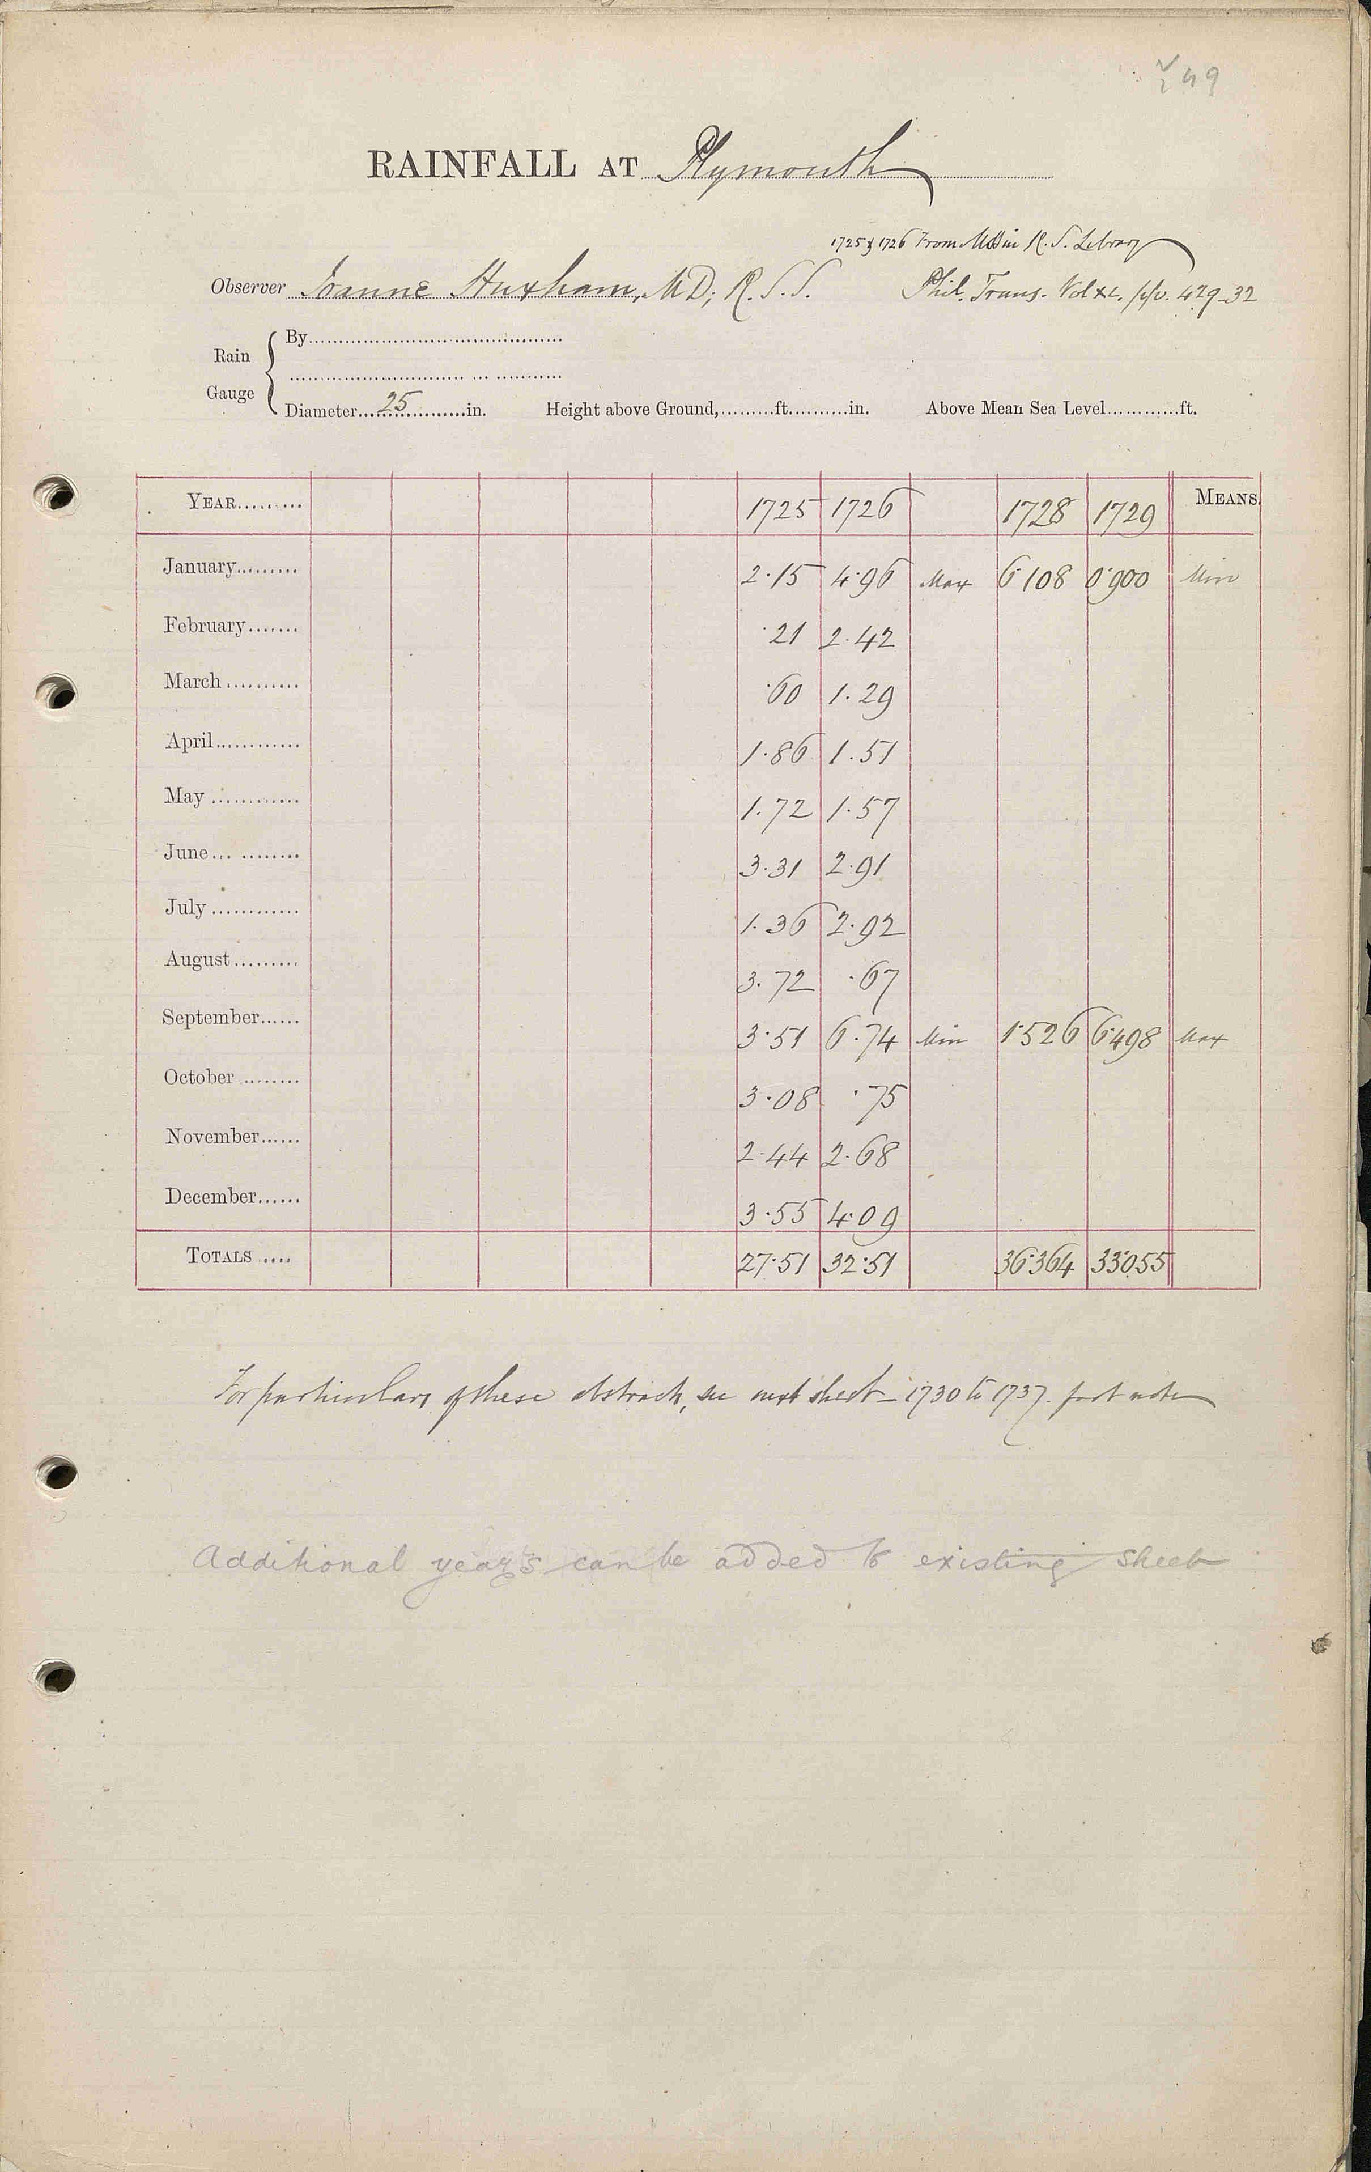 49
RAINFALL AT Plymouth
1725 & 1726 From MSS in R. S. Library
Observer Joanne Huxham, MD; R. S. S. Phil. Trans. Vol XL, pp. 429-32
Rain Gauge
By
Diameter 25 in. Height above Ground, ft. in. Above Mean Sea Level ft.
YEAR 1725 1726 1728 1729 MEANS.
January 2.15 4.96 Max 6.108 0.900 Min
February .21 2.42
March .60 1.29
April 1.86 1.51
May 1.72 1.57
June 3.31 2.91
July 1.36 2.92
August 3.72 .67
September 3.51 6.74 Min 1.526 6.498 Max
October 3.08 .75
November 2.44 2.68
December 3.55 4.09
TOTALS 27.51 32.51 36.364 33.055
For particulars of these abstracts, see next sheet - 1730 to 1737 foot note
Additional years can be added to existing sheet